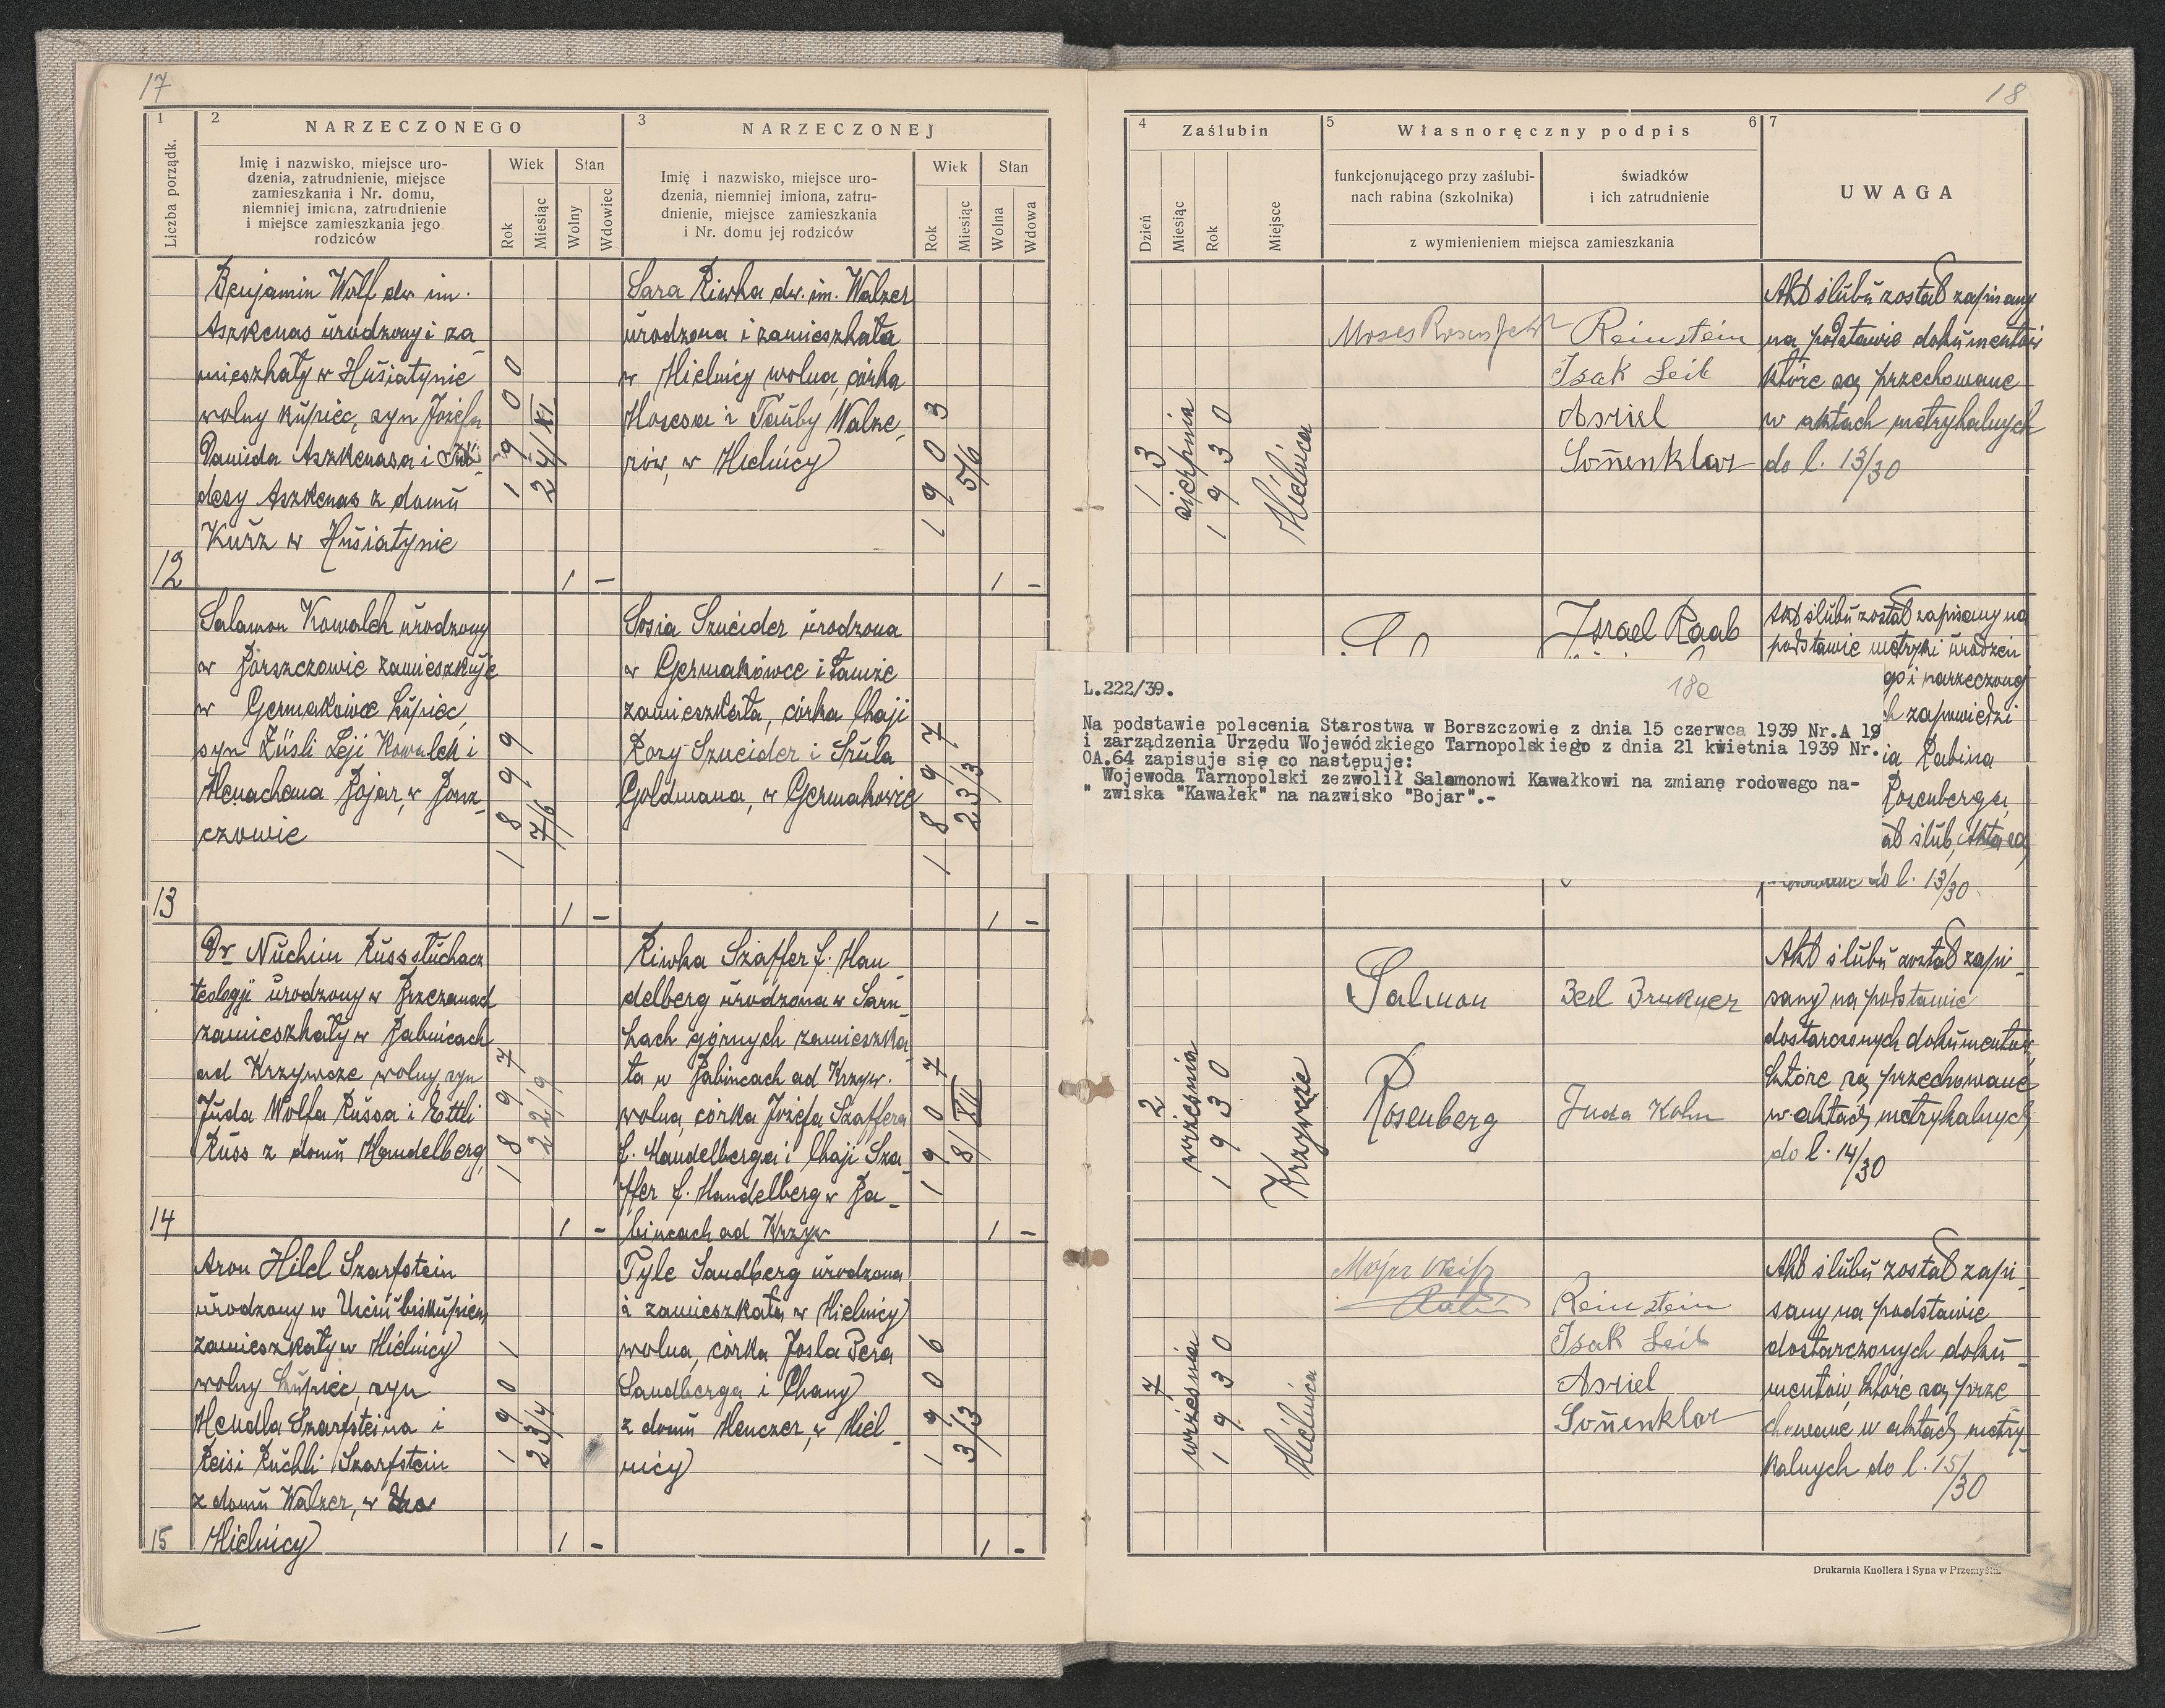 17
18
1
2
NARZECZONEGO
3
NARZECZONEJ
Liczba porządk.
Imię i nazwisko, miejsce uro-
dzenia, zatrudnienie, miejsce
zamieszkania i Nr. domu,
niemniej imiona, zatrudnienie
i miejsce zamieszkania jego
rodziców
Wiek
Stan
Rok
Miesiąc
Wolny
Wdowiec
Imię i nazwisko, miejsce uro-
dzenia, niemniej imiona, zatru-
dnienie, miejsce zamieszkania
i Nr. domu jej rodziców
Wiek
Stan
Rok
Miesiąc
Wolna
Wdowa
4
Zaślubin
5
Własnoręczny podpis
6
7
Dzień
Miesiąc
Rok
Miejsce
funkcjonującego przy zaślubi-
nach rabina (szkolnika)
świadków
i ich zatrudnienie
z wymienieniem miejsca zamieszkania
UWAGA
Benjamin Wolf dw im.
Aszkenas urodzony i za
mieszkały w Husiatynie
wolny kupiec, syn Józefa
Dawida Aszkenasa i
desy Aszkenas z domu
Kurz w Husiatynie
12
1900
24/XI
1 –
Sara Riwka dw. im. Walzer
urodzona i zamieszkała
w Mielnicy wolna, córka
Mosesa i Tauby Walze,
rów, w Mielnicy
1903
5/6
1 –
13
sierpnia
1930
Mielnica
Moses
Reinstein
Isak Leib
Asriel
Sonenklar
Akt ślubu został zapisany
na podstawie dokumentów
które są przechowane
w aktach metrykalnych
do l. 13/30
Salamon Kowalek urodzony
w Borszczowie zamieszkuje
w Germakówce kupiec,
syn Züsli Leji Kowalek i
Menachema Bojar, w Borsz-
czowie
13
1899
7/6
1 –
Sosia Szneider urodzona
w Germakówce i tamże
zamieszkała, córka Chaji
Rozy Szneider i Srula
Goldmana, w Germakowie
1897
23/3
1 –
Israel Raab
Akt ślubu został zapisany na
podstawie metryki urodzin
go i narzeczonej
ch zapowiedzi
ia Rabina
Rosenberga,
ał ślub, Akta są
do l. 13/30
L.222/39.
18a
Na podstawie polecenia Starostwa w Borszczowie z dnia 15 czerwca 1939 Nr.A 19
i zarządzenia Urzędu Wojewódzkiego Tarnopolskiego z dnia 21 kwietnia 1939 Nr.
OA.64 zapisuje się co następuje:
Wojewoda Tarnopolski zezwolił Salamonowi Kawałkowi na zmianę rodowego na-
" zwiska "Kawałek" na nazwisko "Bojar".-
Dr Nuchim Russ słuchacz
teologji urodzony w Brzezanach
zamieszkały w Babincach
ad Krzywcze wolny syn
Juda Wolfa Russa i Ettli
Russ z domu Handelberg,
14
1897
22/9
1 –
Riwka Szaffer f. Han
delberg urodzona w Sam
kach górnych zamieszka
ła w Babincach ad Krzyw.
wolna, córka Józefa Szaffera
f. Handelberga i Chaji Sza
ffer f. Handelberg w Ba
bincach ad Krzyw
1907
8/XII
1 –
2
września
1930
Krzywcze
Salmon
Rosenberg
Berl Brukner
Juda Kohn
Akt ślubu został zapi-
sany na podstawie
dostarczonych dokumentów,
które są przechowane
w aktach metrykalnych
do l. 14/30
Aron Hilel Szarfstein
urodzony w Uściu biskupiem
zamieszkały w Mielnicy
wolny kupiec, syn
Mendla Szarfsteina i
Reisi Ruchli Szarfstein
z domu Walzer, w
Mielnicy
15
1901
23/4
1 –
Tyle Sandberg urodzona
i zamieszkała w Mielnicy
wolna, córka Josla Pera
Sandberga i Chany
z domu Menczer, w Miel
nicy
1906
3/3
1 –
7
września
1930
Mielnica
Reinstein
Isak Leib
Asriel
Sonenklar
Akt ślubu został zapi-
sany na podstawie
dostarczonych doku-
mentów, które są prze
chowane w aktach metry
kalnych do l. 15/30
Drukarnia Knollera i Syna w Przemyślu.